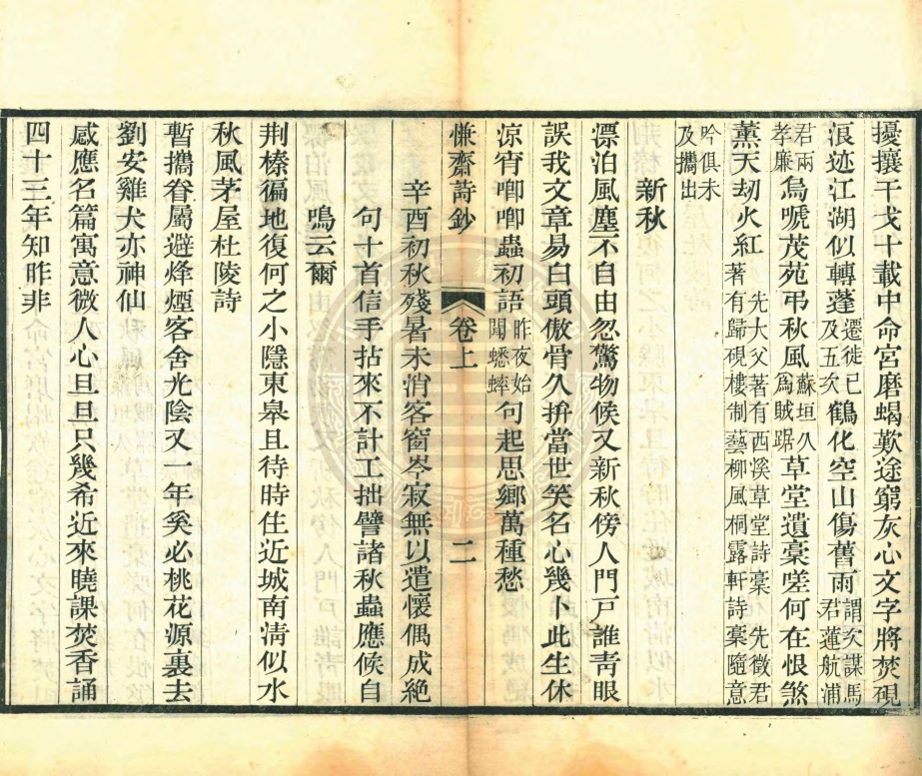 擾攘干戈十載中命宮磨蝎歎途窮灰心文字將焚硯
浪迹江湖似轉蓬遷徙已及五次鶴化空山傷舊雨謂次謀馬君蓮航浦
君兩孝廉烏嗁茂苑弔秋風蘇垣久爲賊踞草堂遺稾嗟何在恨煞
薰天刧火紅先大父著有西溪草堂詩稾先徵君著有歸硯樓制藝柳風桐露軒詩稾隨意
吟俱未及攜出
新秋
漂泊風塵不自由忽驚物候又新秋傍人門戶誰靑眼
誤我文章易白頭傲骨久拚當世笑名心幾卜此生休
涼宵喞喞蟲初語昨夜始聞蟋蟀句起思鄉萬種愁
慊齋詩鈔 卷上 二
辛酉初秋殘暑未消客窗岑寂無以遣懷偶成絶
句十首信手拈來不計工拙譬諸秋蟲應候自
鳴云爾
荆榛徧地復何之小隱東皋且待時住近城南淸似水
秋風茅屋杜陵詩
暫攜眷屬避烽煙客舍光陰又一年奚必桃花源裏去
劉安雞犬亦神仙
感應名篇寓意微人心旦旦只幾希近來曉課焚香誦
四十三年知昨非